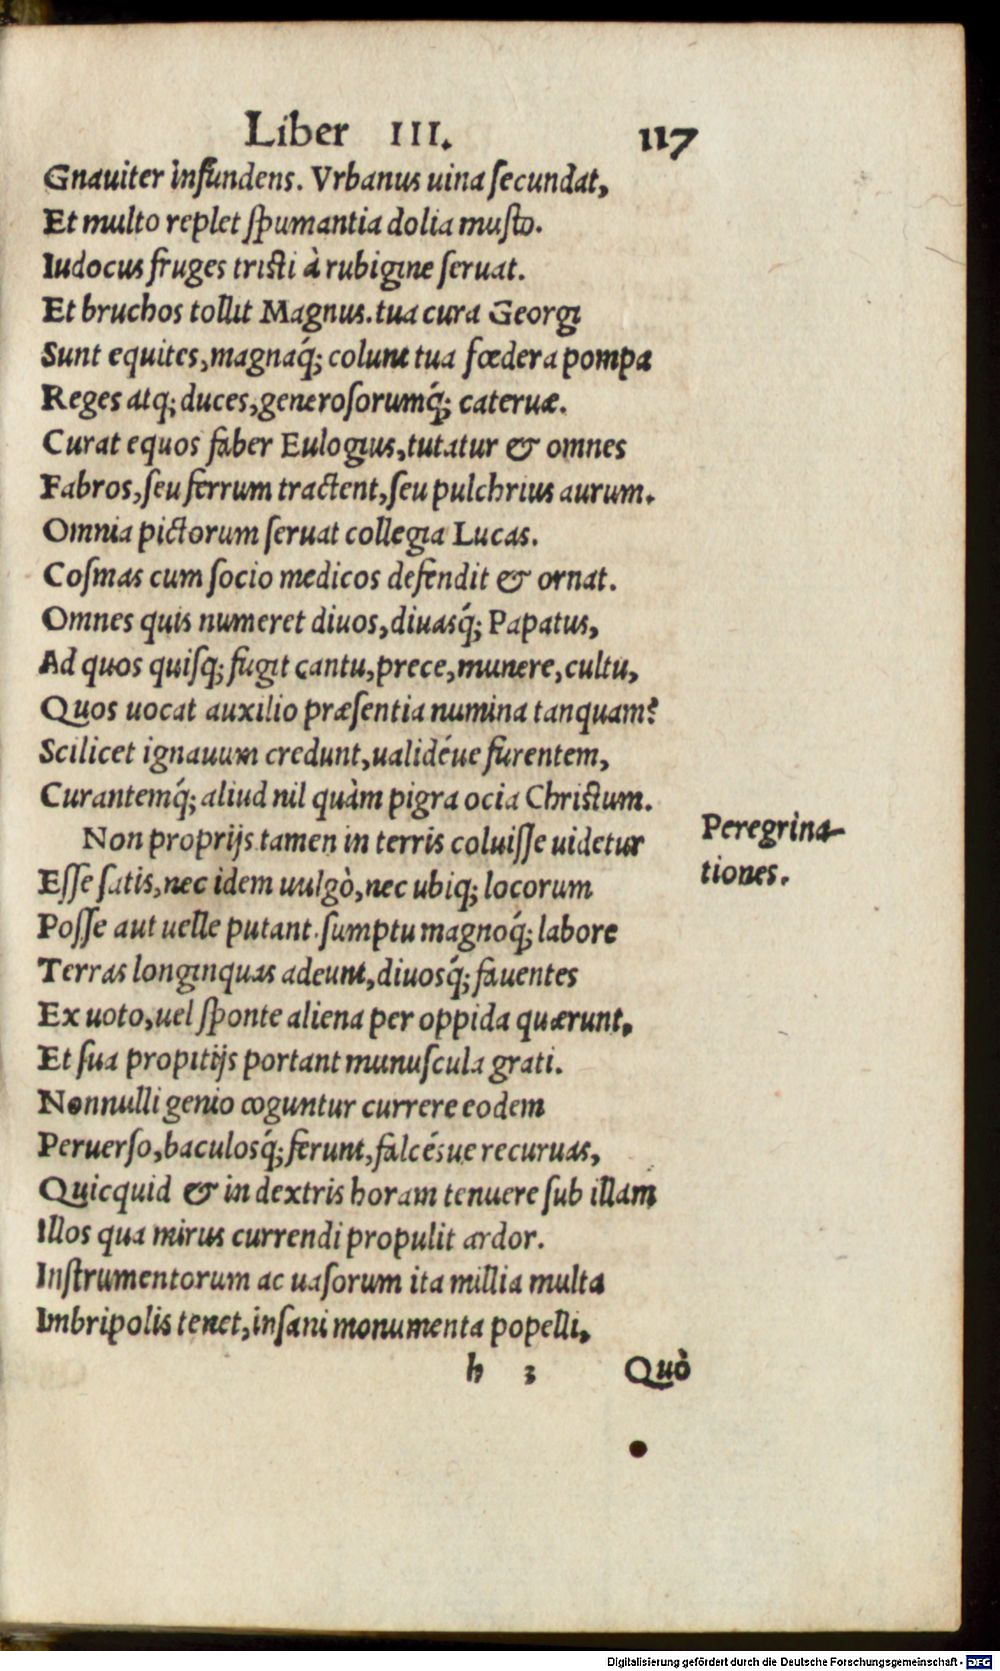 Liber III. 117
Gnauiter infundens. Vrbanus uina ſecundat,
Et multo replet ſpumantia dolia muſto.
Iudocus fruges triſti à rubigine ſeruat.
Et bruchos tollit Magnus. tua cura Georgi
Sunt equites, magnaq́; colunt tua fœdera pompa
Reges atq; duces, generoſorumq́; cateruæ.
Curat equos faber Eulogius, tutatur & omnes
Fabros, ſeu ferrum tractent, ſeu pulchrius aurum.
Omnia pictorum ſeruat collegia Lucas.
Coſmas cum ſocio medicos defendit & ornat.
Omnes quis numeret diuos, diuasq́; Papatus,
Ad quos quiſq; fugit cantu, prece, munere, cultu,
Quos uocat auxilio præſentia numina tanquam?
Scilicet ignauum credunt, ualidéue furentem,
Curantemq́; aliud nil quàm pigra ocia Chriſtum.
Non proprijs tamen in terris coluiſſe uidetur
Peregrina-
tiones.
Eſſe ſatis, nec idem uulgò, nec ubiq; locorum
Poſſe aut uelle putant. ſumptu magnoq́; labore
Terras longinquas adeunt, diuosq́; fauentes
Ex uoto, uel ſponte aliena per oppida quærunt,
Et ſua propitijs portant munuſcula grati.
Nonnulli genio coguntur currere eodem
Peruerſo, baculosq́; ferunt, falcésue recuruas,
Quicquid & in dextris horam tenuere ſub illam
Illos qua mirus currendi propulit ardor.
Inſtrumentorum ac uaſorum ita millia multa
Imbripolis tenet, inſani monumenta popelli,
h 3 Quò
Digitalisierung gefördert durch die Deutsche Forschungsgemeinschaft - DFG